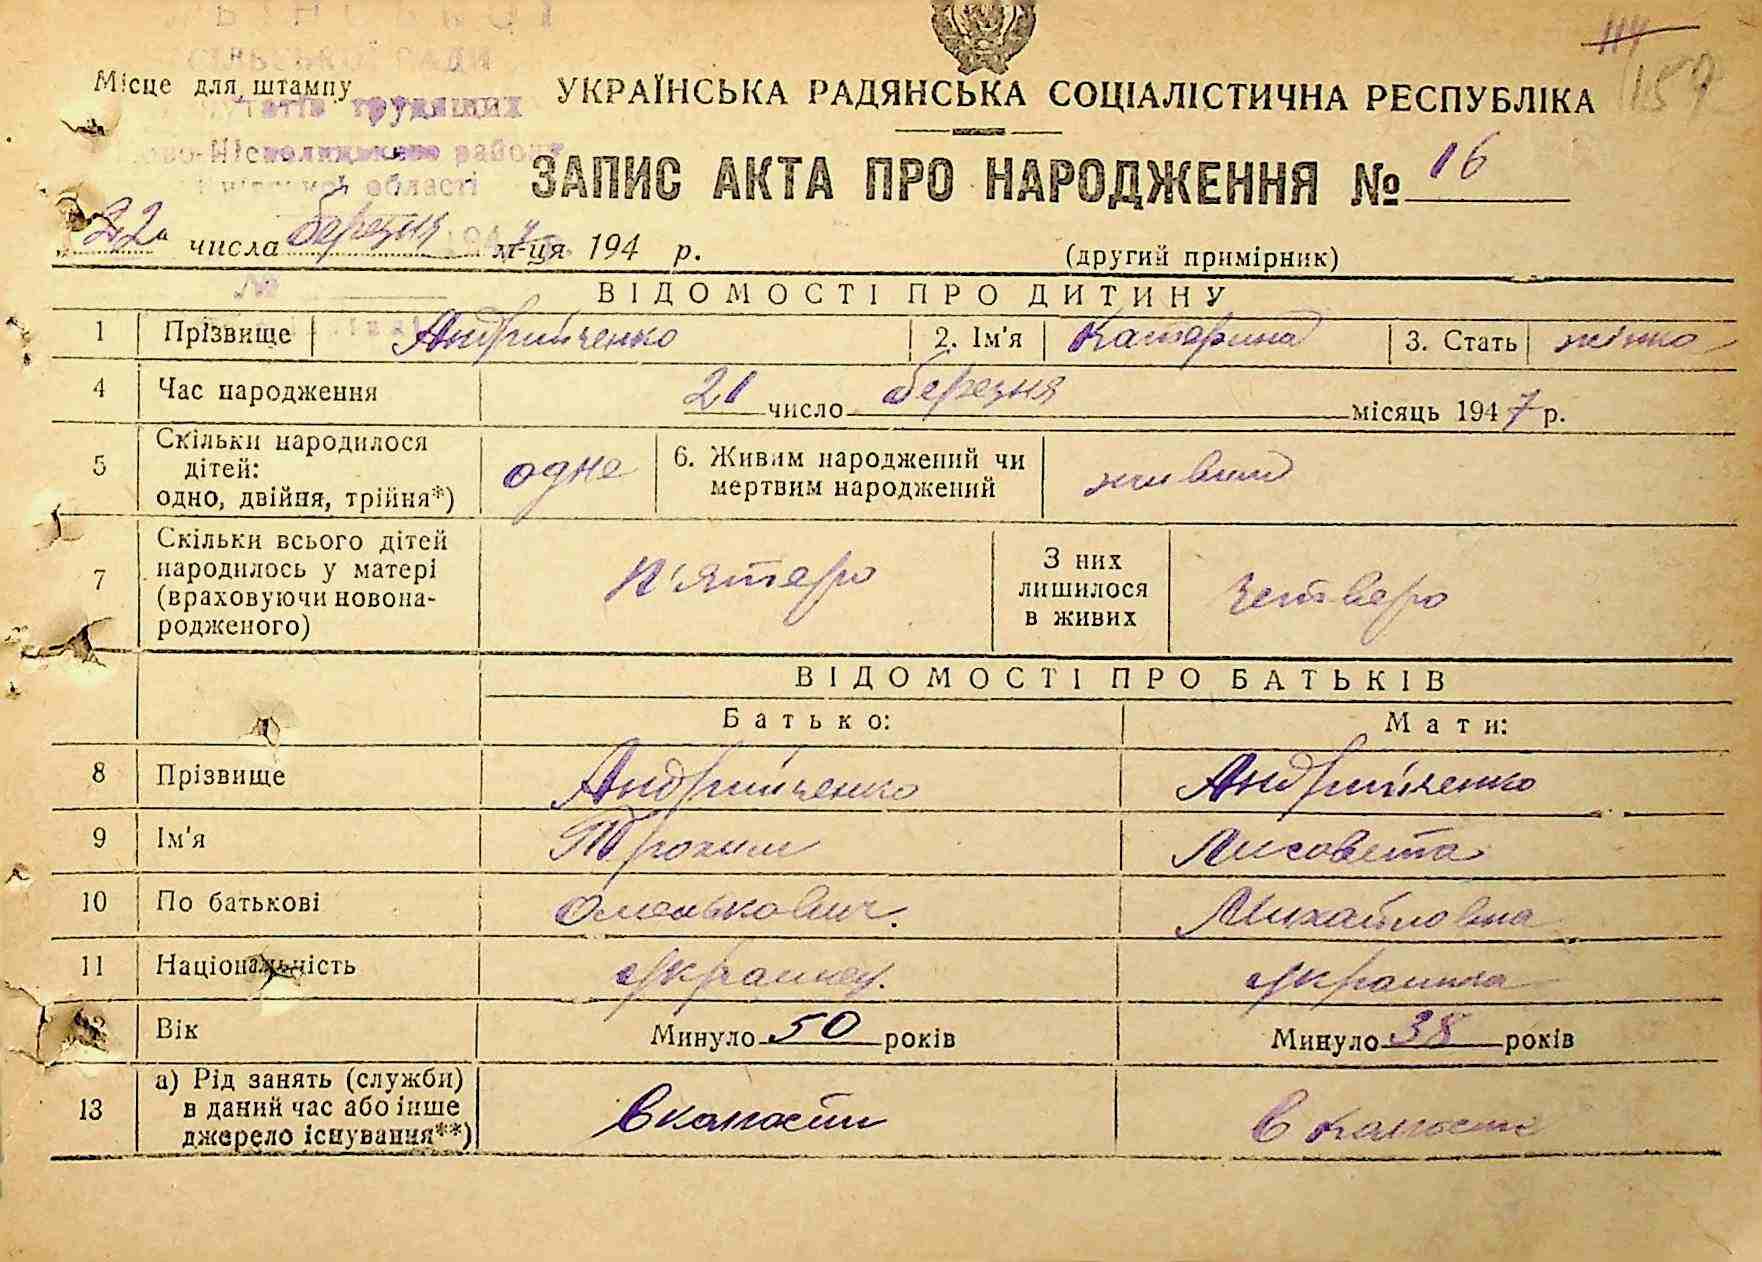 СІЛЬСЬКОЇ РАДИ
Місце для штампу
УКРАЇНСЬКА РАДЯНСЬКА СОЦІАЛІСТИЧНА РЕСПУБЛІКА
114
157
трудящих
району
області
ЗАПИС АКТА ПРО НАРОДЖЕННЯ № 16
„22“ числа березня м-ця 1947 р. (другий примірник)
№
ВІДОМОСТІ ПРО ДИТИНУ
1 Прізвище Андрийченко 2. Ім'я Катерина 3. Стать жінка
4 Час народження 21 число березня місяць 1947 р.
5 Скільки народилося дітей: одно, двійня, трійня*) одне 6. Живим народжений чи мертвим народжений живим
7 Скільки всього дітей народилось у матері (враховуючи новонародженого) п'ятеро З них лишилося в живих четверо
ВІДОМОСТІ ПРО БАТЬКІВ
Батько: Мати:
8 Прізвище Андрийченко Андрийченко
9 Ім'я Трохим Лисовета
10 По батькові Омелькович. Михайловна
11 Національність Українец. Українка
12 Вік Минуло 50 років Минуло 38 років
13 а) Рід занять (служби) в даний час або інше джерело існування**) в колгоспи в колгоспе